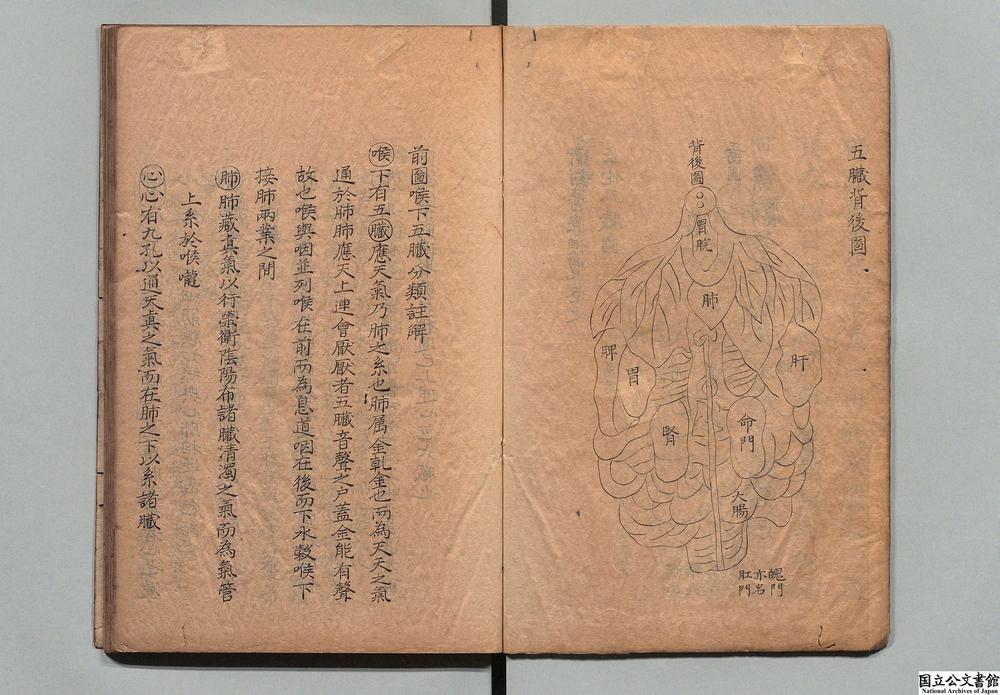 五臟背後圖
背後圖
胃脘
肺
脾
胃
肝
腎
命門
大腸
魄門
亦名
肛門
前圖喉下五臟分類註解
喉下有五臟應天氣乃肺之系也肺属金乹金也而為天天之氣
通於肺肺應天上連會厭厭者五臟音聲之户蓋金能有聲
故也喉與咽並列喉在前而為息道咽在後而下水穀喉下
接肺兩業之間
肺肺藏真氣以行榮衛陰陽布諸臟清濁之氣而為氣管
上系於喉嚨
心心有九孔以通天真之氣而在肺之下以系諸臟
国立公文書館
National Archives of Japan